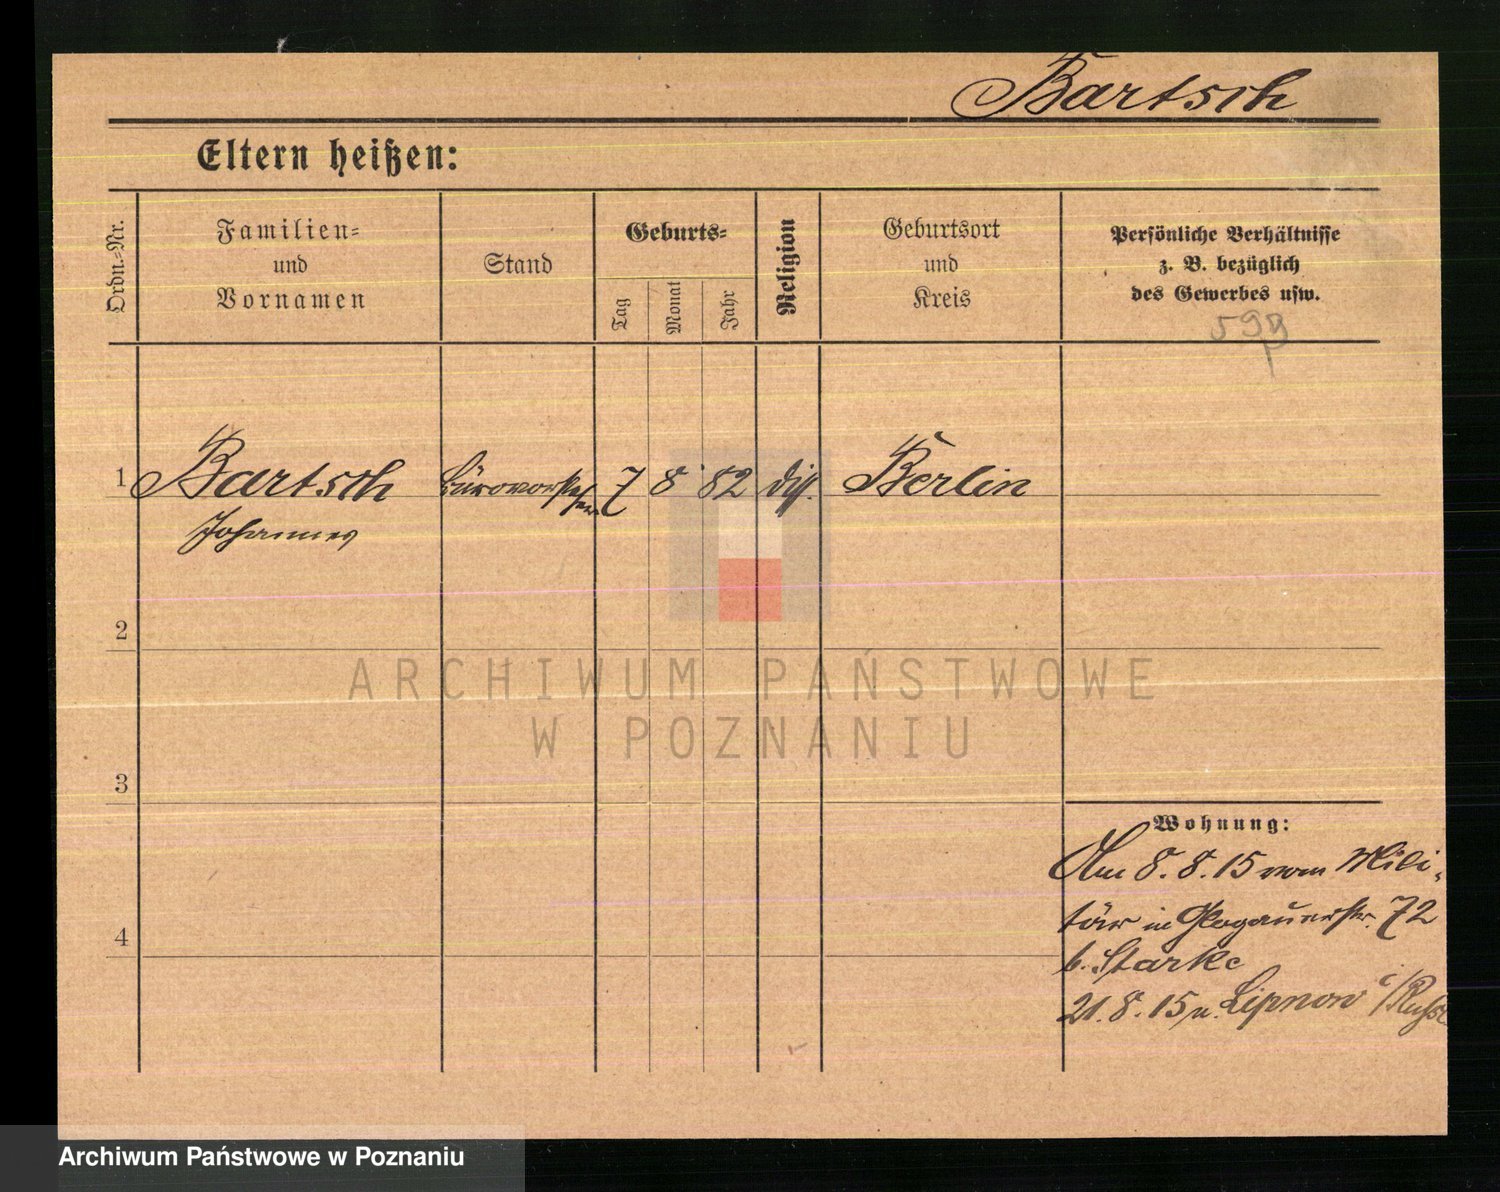 Bartsch
Eltern heißen:
Ordn.-Nr.
Familien-
und
Vornamen
Stand
Geburts-
Tag
Monat
Jahr
Religion
Geburtsort
und
Kreis
Persönliche Verhältnisse
z. B. bezüglich
des Gewerbes usw.
1 Bartsch Bürovorsteher 7 8 82 diss. Berlin
Johannes
2
3
4
Wohnung:
Am 8. 8. 15 vom Mili-
tär in Glogauerstr. 72
b. Starke
21. 8. 15 n. Lipnow i/Russl
ARCHIWUM PAŃSTWOWE
W POZNANIU
Archiwum Państwowe w Poznaniu